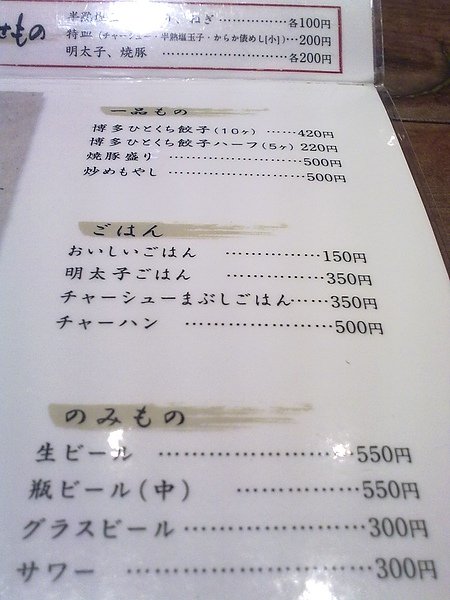 せもの
ねぎ ……………各100円
特皿(チャーシュー・半熟塩玉子・からか俵めし[小])…200円
明太子、焼豚 ……………各200円
一品もの
博多ひとくち餃子(10ヶ) ……420円
博多ひとくち餃子ハーフ(5ヶ) 220円
焼豚盛り ………………500円
炒めもやし ………………500円
ごはん
おいしいごはん ……………150円
明太子ごはん ……………350円
チャーシューまぶしごはん……350円
チャーハン …………………500円
のみもの
生ビール …………………550円
瓶ビール(中) ……………550円
グラスビール …………………300円
サワー ……………………300円